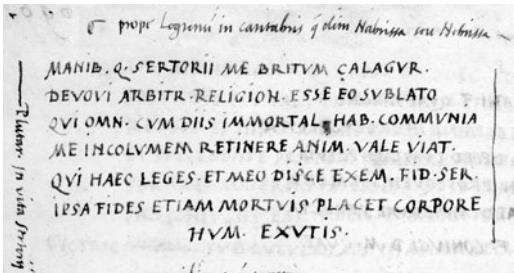 prope Logrenũ in cantabris q̃ olim Nabrissa seu Nebrissa
MANIB. Q. SERTORII ME BRITVM CALAGVR.
DEVOVI ARBITR. RELIGION. ESSE EO SVBLATO
QVI OMN. CVM DIIS IMMORTAL. HAB. COMMVNIA
ME INCOLVMEM RETINERE ANIM. VALE VIAT.
QVI HAEC LEGES. ET MEO DISCE EXEM. FID. SER.
IPSA FIDES ETIAM MORTVIS PLACET CORPORE
HVM. EXVTIS.
in vita